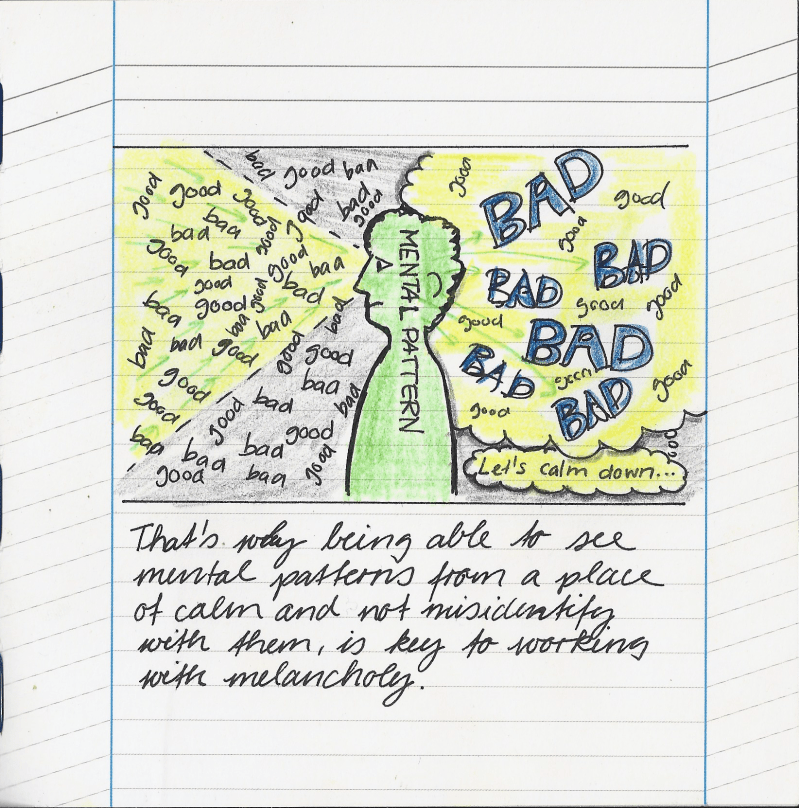 bad
good
bad
good
good
good
good
bad
good
bad
bad
good
good
bad
good
bad
good
good
bad
bad
good
good
bad
bad
bad
bad
bad
good
good
good
bad
bad
good
good
bad
bad
good
good
bad
bad
bad
good
good
bad
MENTAL PATTERN
good
BAD
good
good
BAD
BAD
good
good
good
BAD
BAD
good
good
BAD
good
good
Let's calm down...
That's why being able to see
mental patterns from a place
of calm and not misidentify
with them, is key to working
with melancholy.